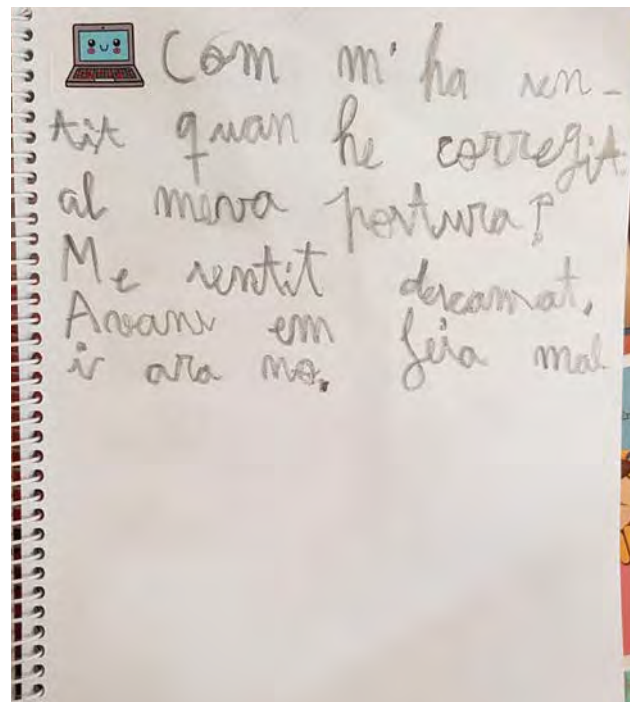 Com m'ha sen-
tit quan he corregit
al meva postura?
Me sentit descansat,
Avans em feia mal
i ara no.